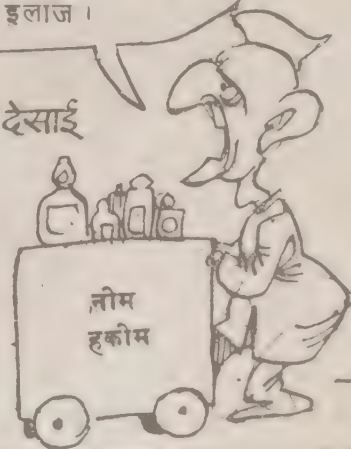 इलाज ।
देसाई
नीम
हकीम